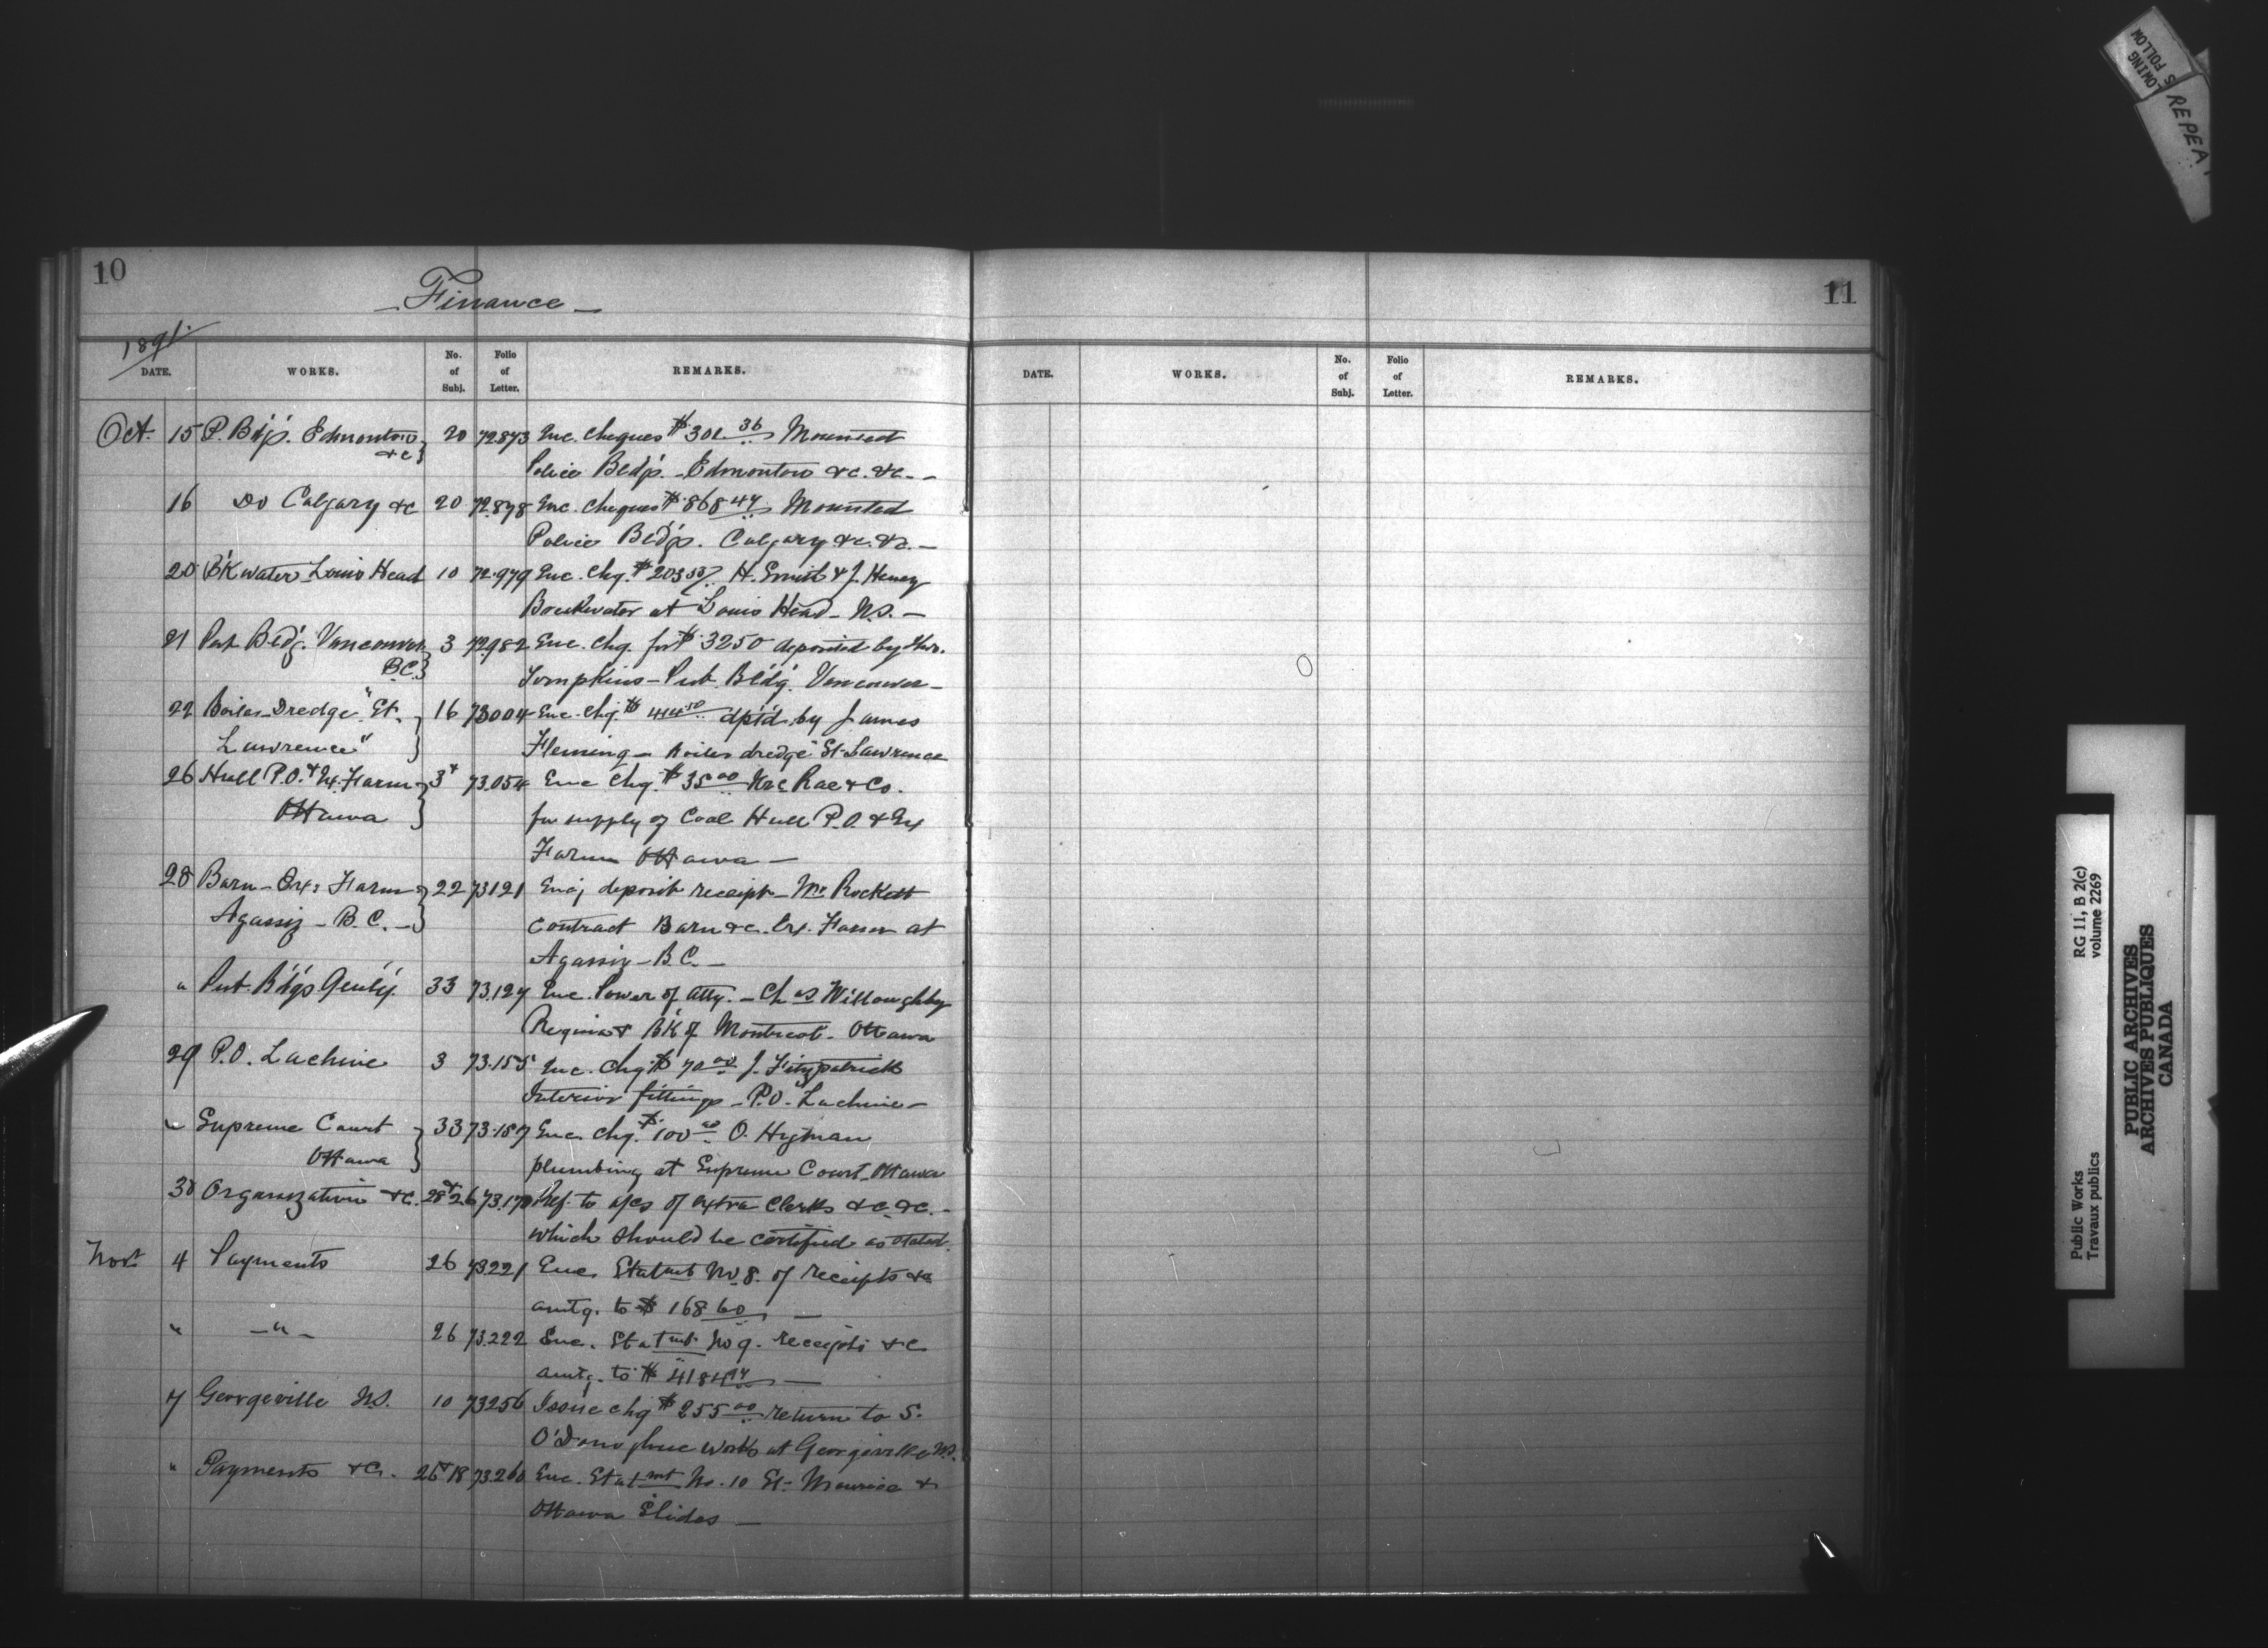 10
Finance
1891.
DATE. WORKS. No. of Subj. Folio of Letter. REMARKS.
Oct. 15 P. Bdgs. Edmonton &c 20 72873 Enc. Cheques $301.36 Mounted
Police Bldgs. - Edmonton &c. &c. -
16 Do Calgary &c 20 72.878 Enc. Cheques $868.47 Mounted
Police Bldgs. Calgary &c. &c. -
20 B'Kwater Louis Head 10 72.979 Enc. Chq. $203 H. Smith & J. Henry
Breakwater at Louis Head - N.S. -
21 Pub. Bldg. Vancouver B.C. 3 72982 Enc. Chq. for $3250 deposited by Thos.
Tompkins - Pub. Bldg. Vancouver -
22 Boiler - Dredge "St. 16 73004 Enc. Chq. $414.50 dptd by James
Lawrence" Fleming - Boiler dredge St. Lawrence
26 Hull P.O. & Ex. Farm 3 & 73.054 Enc Chq. $35.00 McRae & Co.
Ottawa for supply of Coal Hull P.O. & Ex
Farm Ottawa -
28 Barn - Ex: Farm 22 73121 Encg deposit receipt - Mr Rockett
Agassiz - B.C. - Contract Barn &c. Ex. Farm at
Agassiz - B.C. -
" Pub. B'dgs Gen'ly. 33 73.127 Enc. Power of Atty. - Chas Willoughby
Regina & B'K of Montreal - Ottawa
29 P.O. Lachine 3 73.155 Enc. Chq $70.00 J. Fitzpatrick
Interior fittings - P.O. Lachine -
" Supreme Court 33 73.157 Enc. Chq. $100.00 O. Higman
Ottawa plumbing at Supreme Court, Ottawa
30 Organization &c. 28 & 26 73.170 Ref. to a/cs of extra Clerks &c. &c. -
which should be certified as stated.
Nov. 4 Payments 26 73221 Enc. Statmt No. 8. of receipts &c
amtg. to $168.60 -
" - " - 26 73.222 Enc. Statmt. No 9. receipts &c
amtg. to $4184.94 -
7 Georgeville N.S. 10 73256 Issue chq $255.00 return to S.
O'Donoghue work at Georgeville N.S.
" Payments &c. 26 & 18 73.260 Enc. Statmt No. 10 St. Maurice &
Ottawa Slides -
11
DATE. WORKS. No. of Subj. Folio of Letter. REMARKS.
LOWING
S FOLLOW
REPEA
RG 11, B 2(c)
volume 2269
Public Works
Travaux publics
PUBLIC ARCHIVES
ARCHIVES PUBLIQUES
CANADA